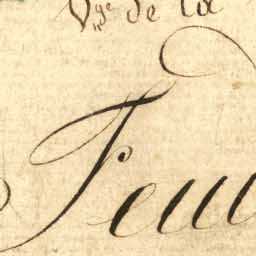 Vge de la
Feu